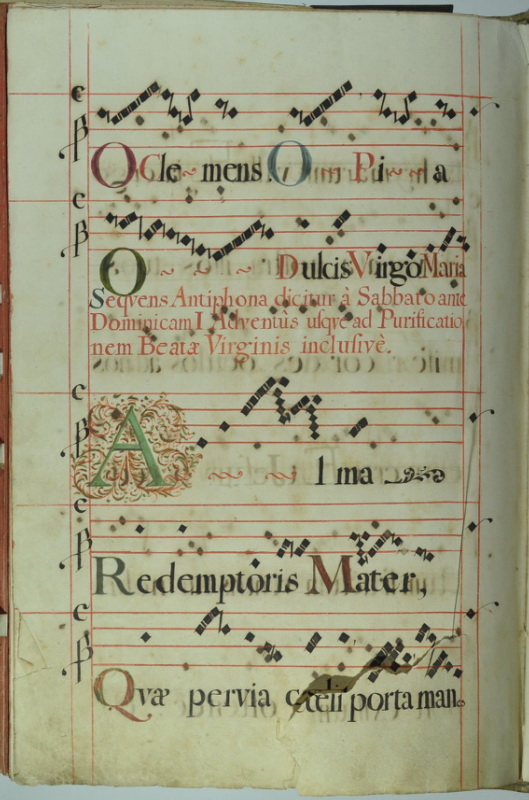 O Cle ~ mens. O ~ Pi ~ ~ a
O ~ ~ ~ Dulcis Virgo Maria
Seqvens Antiphona dicitur à Sabbato ante
Dominicam I Adventûs usqve ad Purificatio
nem Beatæ Virginis inclusivè.
A ~ ~ lma
Redemptoris Mater,
Qvæ pervia cæli porta man.